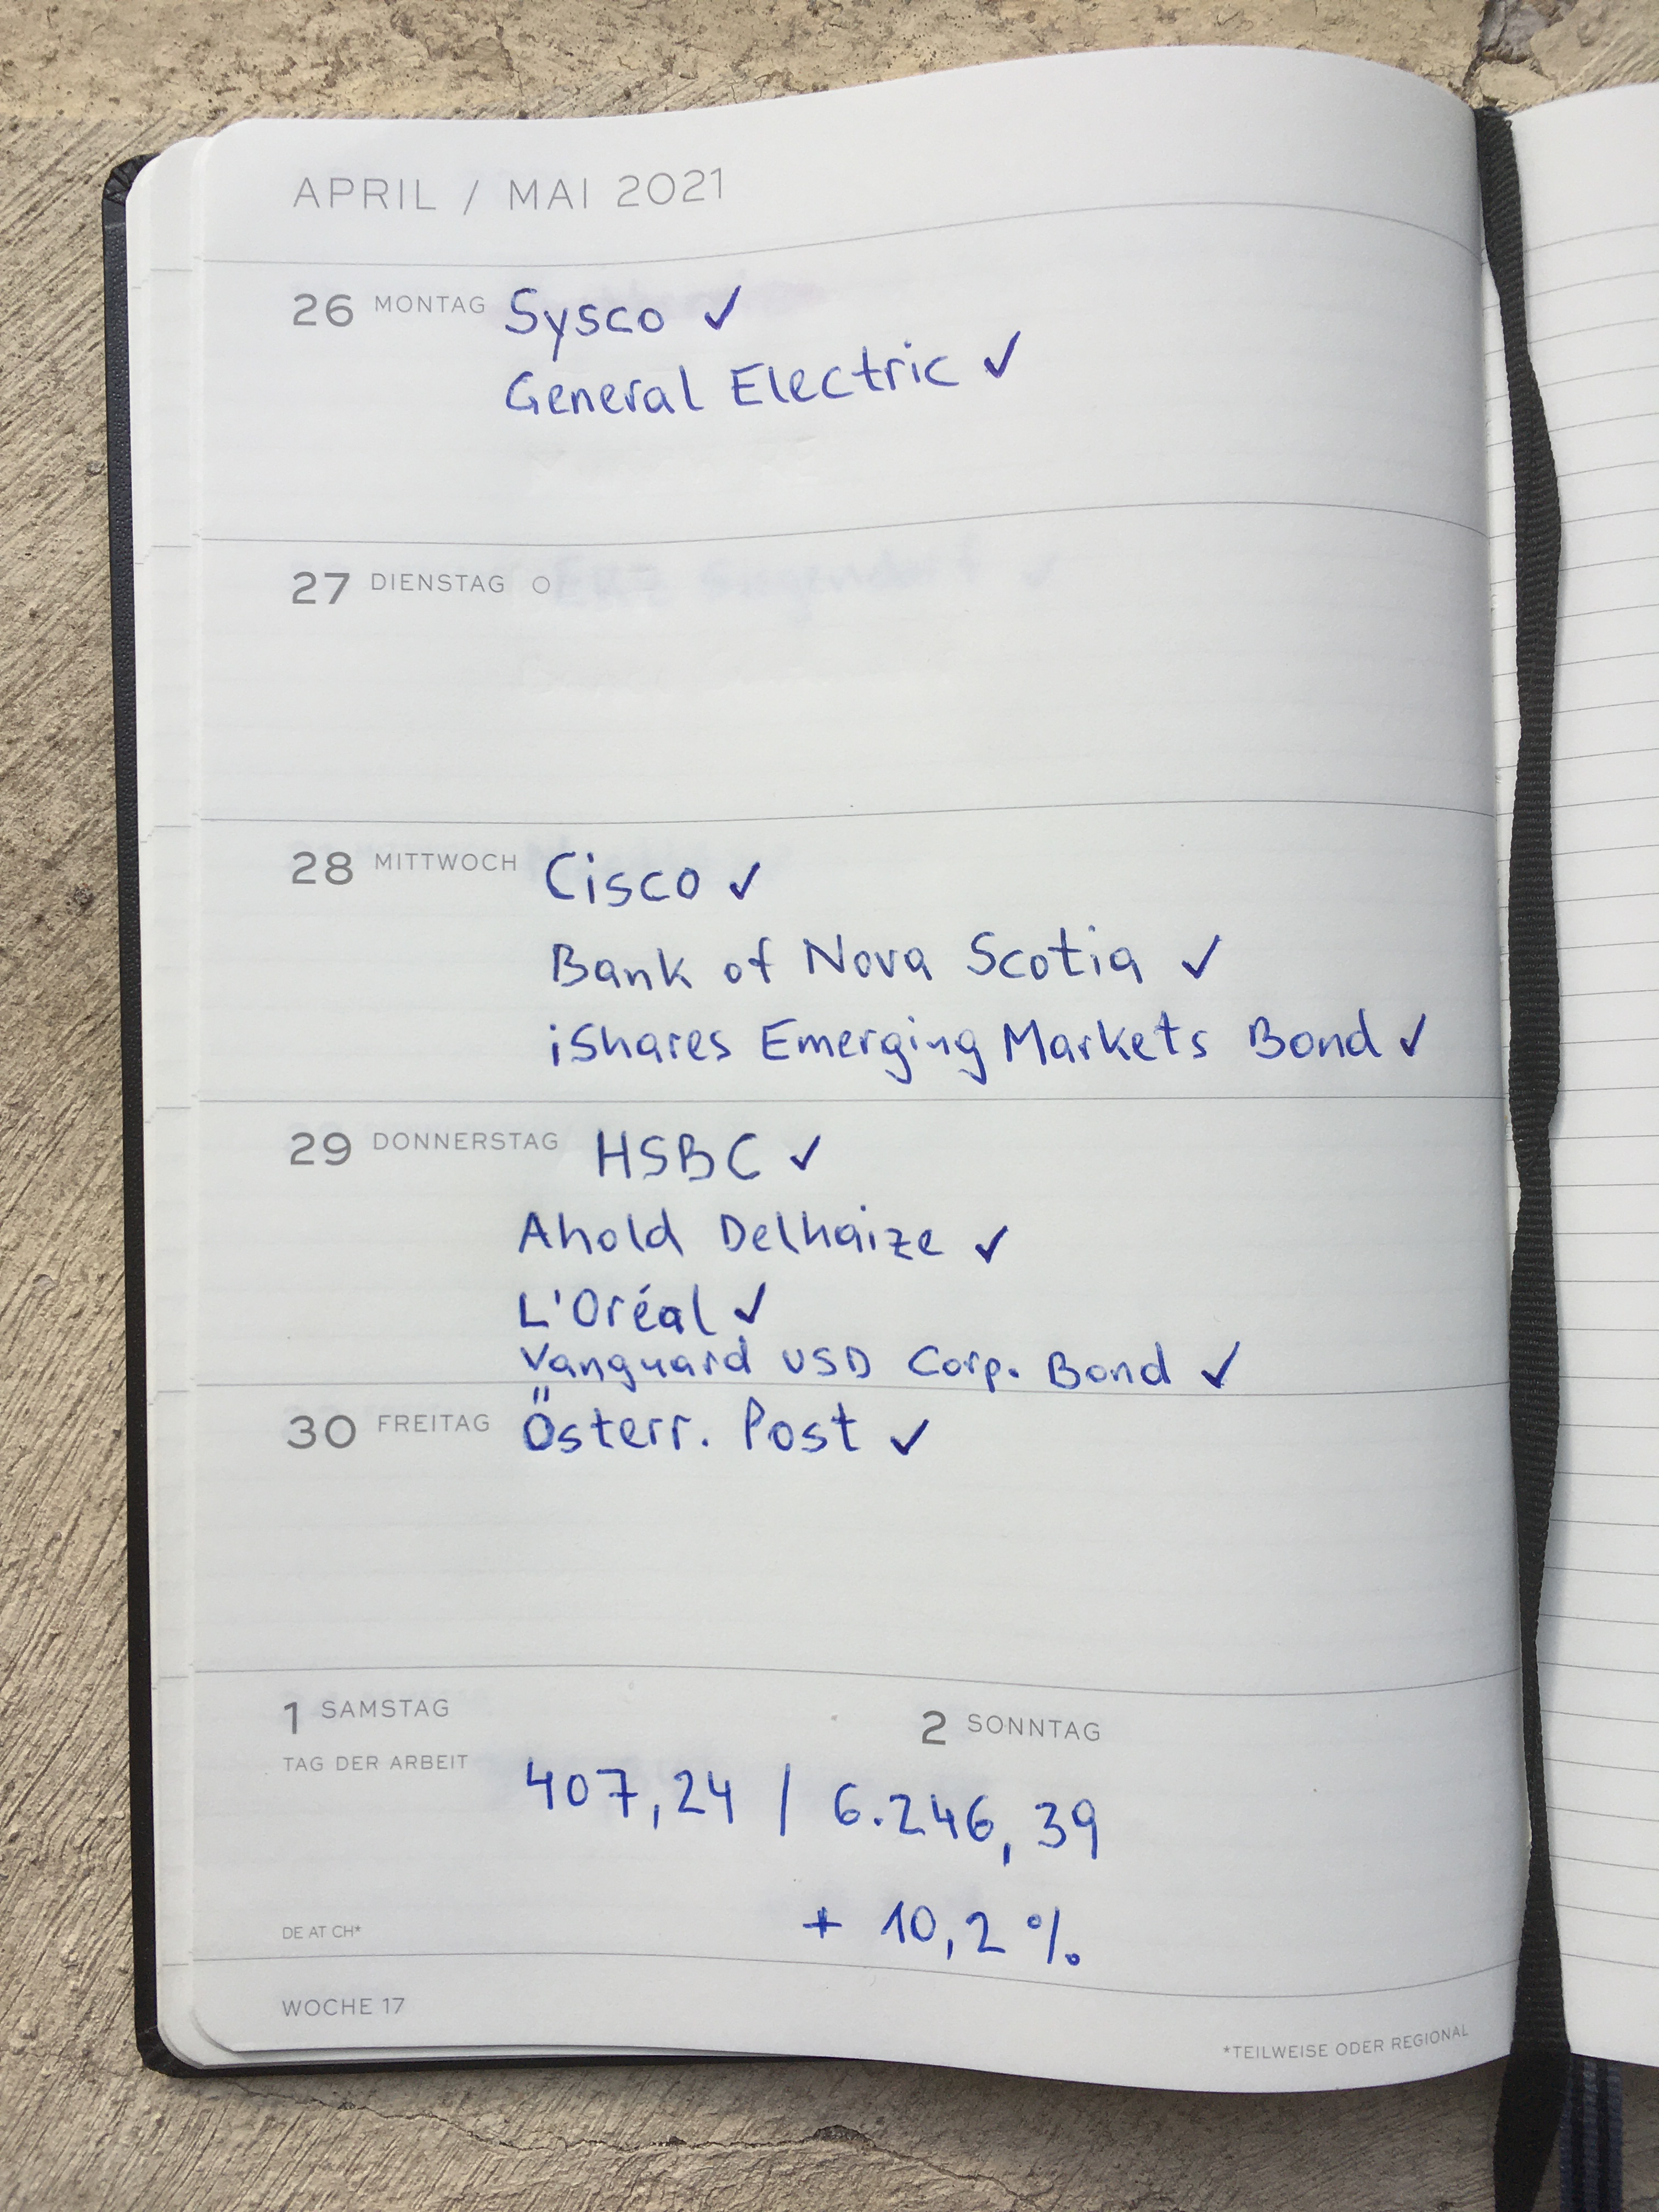 APRIL / MAI 2021
26 MONTAG Sysco ✓
General Electric ✓
27 DIENSTAG
28 MITTWOCH Cisco ✓
Bank of Nova Scotia ✓
iShares Emerging Markets Bond ✓
29 DONNERSTAG HSBC ✓
Ahold Delhaize ✓
L'Oréal ✓
Vanguard USD Corp. Bond ✓
30 FREITAG Österr. Post ✓
1 SAMSTAG
2 SONNTAG
TAG DER ARBEIT
407,24 / 6.246,39
+ 10,2 %
DE AT CH*
WOCHE 17
*TEILWEISE ODER REGIONAL